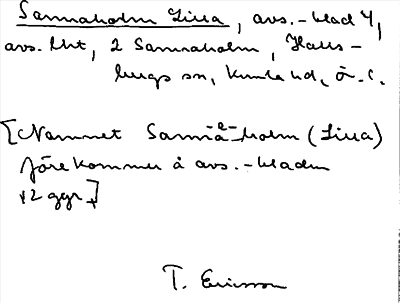 Sannaholm Lilla, avs.-blad 4,
avs. lht, 2 Sannaholm, Halls-
bergs sn, Kumla hd, Ö. l.
[Namnet Sanna-2-holm (Lilla)
förekommer å avs.-bladen
2 ggr.]
T. Ericsson